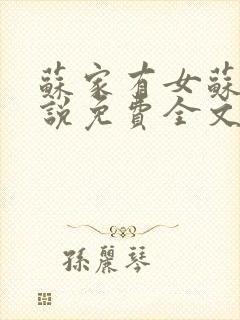 蘇家有女蘇
說免費全文
孫麗琴